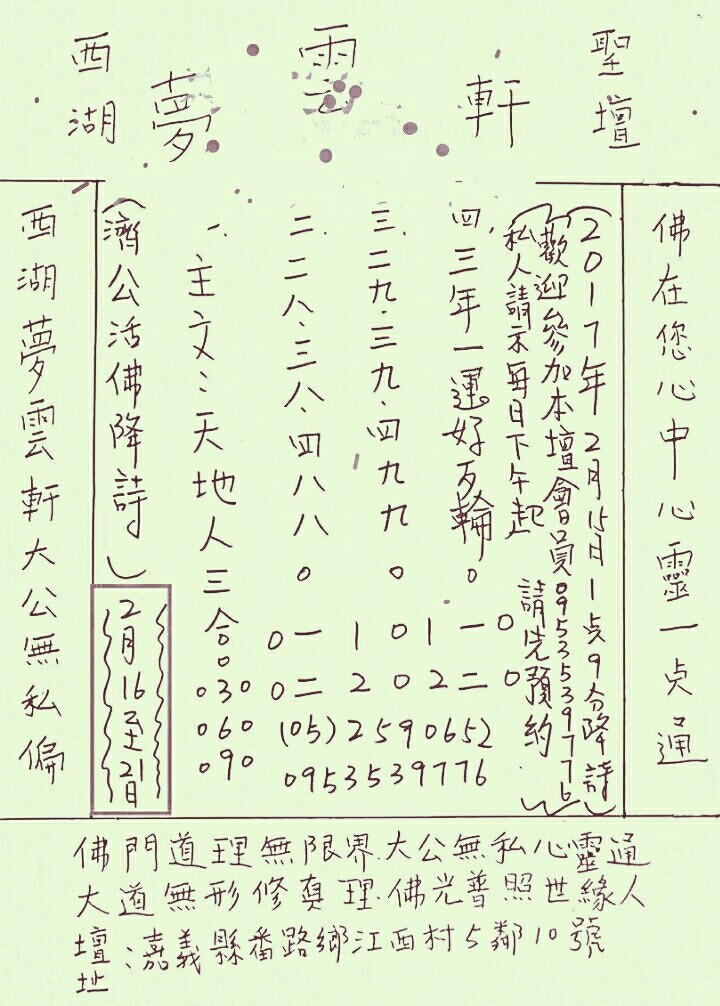 西湖夢雲軒聖壇
佛在您心中心靈一点通
(2017年2月15日1点9分降詩)
(歡迎參加本壇會員0953539776)
私人請示每日下午起 請先預約
四,三年一運好歹輪。
三.二九.三九.四九九。
二.二八.三八.四八八。
一.主文:天地人三合。
030
060
090
0一 101一0
0二 202二0
(05)2590652
0953539776
(濟公活佛降詩)
2月16至21日
西湖夢雲軒大公無私偏
佛門道理無限界.大公無私心靈通
大道無形修真理.佛光普照世緣人
壇址:嘉義縣番路鄉江西村5鄰10號